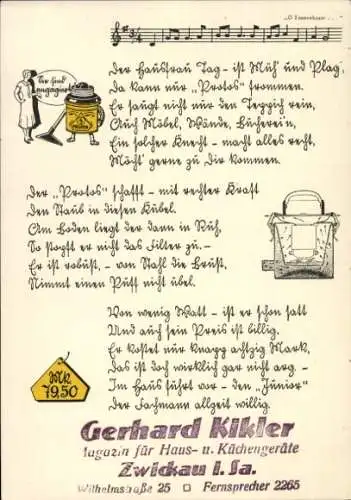 „O Tannenbaum . . .“
Sie sind
engagiert
Der Hausfrau Tag – ist Müh' und Plag',
Da kann nur „Protos“ frommen.
Er saugt nicht nur den Teppich rein,
Auch Möbel, Wände, Bücherei'n,
Ein solcher Knecht – macht alles recht,
Möcht' gerne zu Dir kommen.
Der „Protos“ schafft – mit rechter Kraft
Den Staub in diesen Kübel.
Am Boden liegt der dann in Ruh,
So stopft er nicht das Filter zu. –
Er ist robust, – von Stahl die Brust,
Nimmt einen Puff nicht übel.
Von wenig Watt – ist er schon satt
Und auch sein Preis ist billig.
Er kostet nur knapp achtzig Mark,
Das ist doch wirklich gar nicht arg. –
Im Haus führt vor – den „Junior“
Der Fachmann allzeit willig.
Mk.
79,50
Gerhard Kikler
Magazin für Haus- u. Küchengeräte
Zwickau i. Sa.
Wilhelmstraße 25 Fernsprecher 2265